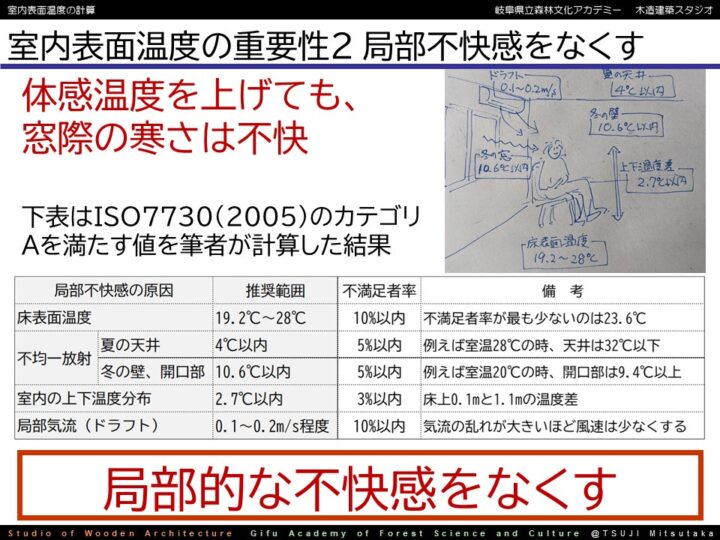 室内表面温度の計算
岐阜県立森林文化アカデミー 木造建築スタジオ
室内表面温度の重要性2 局部不快感をなくす
体感温度を上げても、
窓際の寒さは不快
ドラフト
0.1~0.2m/s
夏の天井
4℃以内
冬の壁
10.6℃以内
冬の窓
10.6℃以内
上下温度差
2.7℃以内
床表面温度
19.2~28℃
下表はISO7730(2005)のカテゴリ
Aを満たす値を筆者が計算した結果
局部不快感の原因 推奨範囲 不満足者率 備 考
床表面温度 19.2℃~28℃ 10%以内 不満足者率が最も少ないのは23.6℃
不均一放射 夏の天井 4℃以内 5%以内 例えば室温28℃の時、天井は32℃以下
冬の壁、開口部 10.6℃以内 5%以内 例えば室温20℃の時、開口部は9.4℃以上
室内の上下温度分布 2.7℃以内 3%以内 床上0.1mと1.1mの温度差
局部気流(ドラフト) 0.1~0.2m/s程度 10%以内 気流の乱れが大きいほど風速は少なくする
局部的な不快感をなくす
Studio of Wooden Architecture Gifu Academy of Forest Science and Culture @TSUJI Mitsutaka